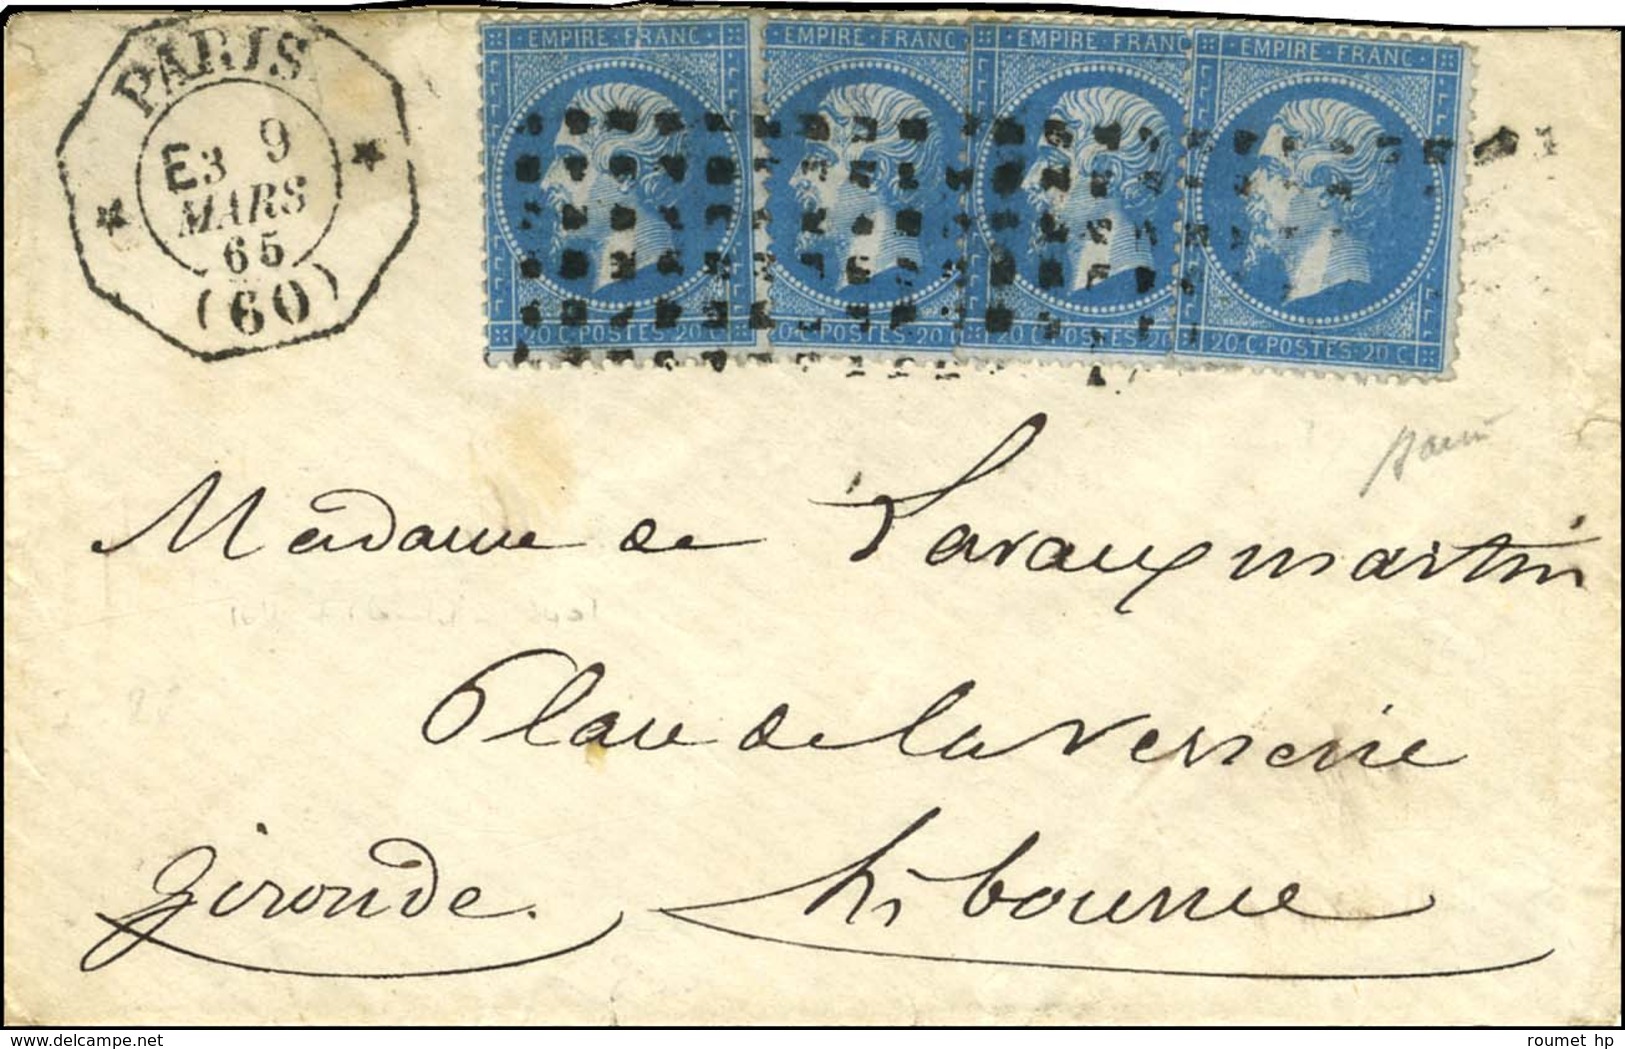 PARIS
E3 9
MARS
65
(60)
EMPIRE FRANC
EMPIRE FRANC
EMPIRE FRANC
EMPIRE FRANC
20 C POSTES 20 C
20 C POSTES 20 C
20 C POSTES 20
20 C POSTES 20 C
Madame de Lavauxmartin
Place de la Verrerie
Gironde. Libourne
www.delcampe.net
roumet hp